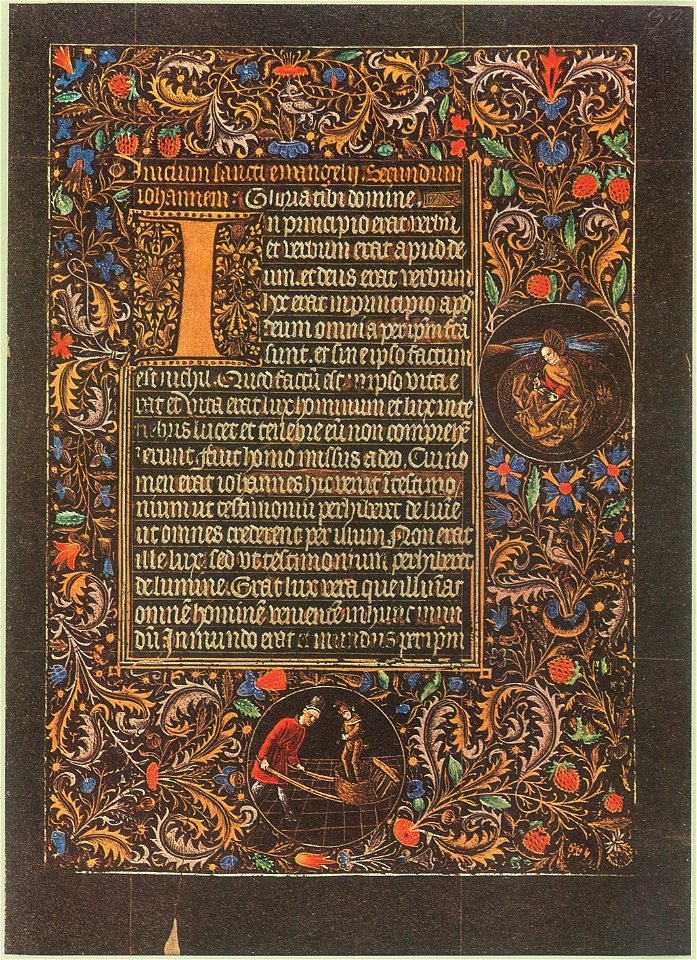 Inicium sancti ewangelij. Secundum
iohannem: Gloria tibi domine.
In principio erat verbū
et verbum erat apud de
um. et deus erat verbum
hoc erat in principio apd̄
deum omnia per ipm̄ fcā
sunt. et sine ipso factum
est nichil. Quod factū est in ipso vita e
rat et vita erat lux hominum et lux in te
nebris lucet et tenebre eū non comprehē
derunt. fuit homo missus a deo. Cui no
men erat iohannes hic venit ī testimo
nium ut testimoniū perhiberet de lumē
ut omnes crederent per illum. Non erat
ille lux. sed ut testimonium perhiberet
de lumine. Erat lux vera que illumīat
omnē hominē venientē in hunc mun
dū. In mundo erat et mundus per ipm̄